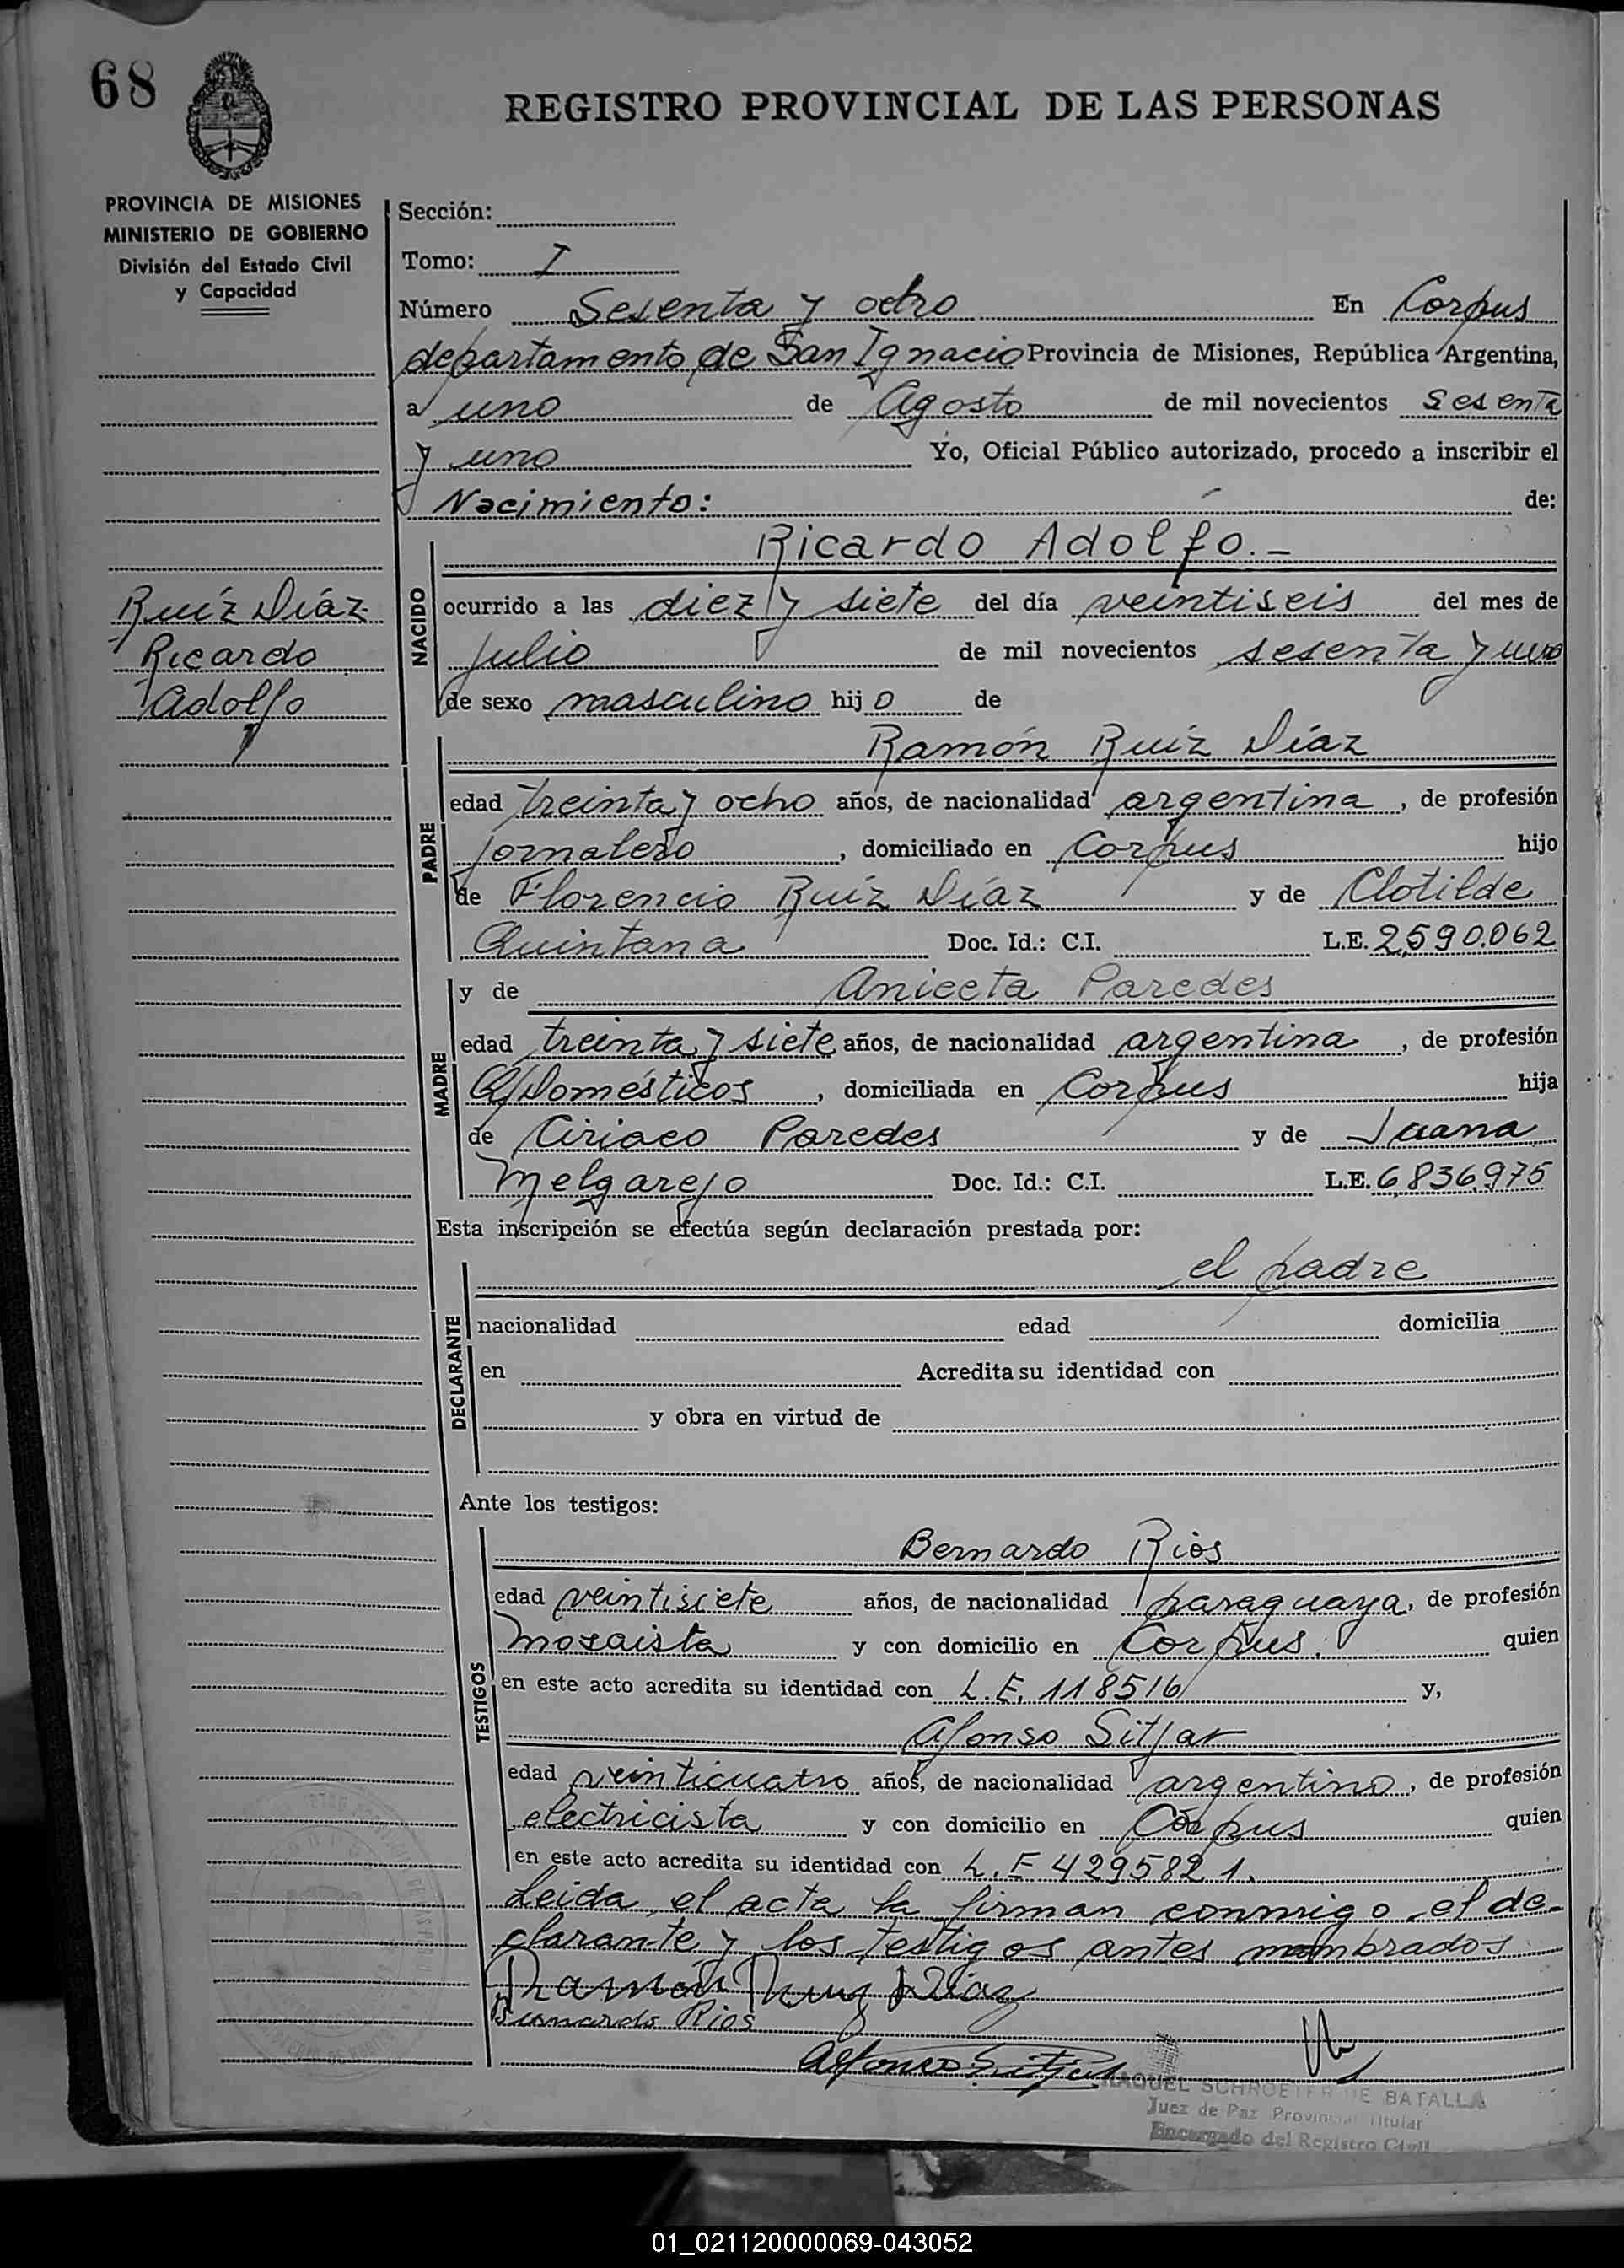 68
REGISTRO PROVINCIAL DE LAS PERSONAS
PROVINCIA DE MISIONES
MINISTERIO DE GOBIERNO
División del Estado Civil
y Capacidad
Sección:
Tomo: I
Número Sesenta y ocho En Corpus
departamento de San Ignacio Provincia de Misiones, República Argentina,
a uno de Agosto de mil novecientos Sesenta
y uno Yo, Oficial Público autorizado, procedo a inscribir el
Nacimiento: de:
Ruíz Díaz
Ricardo
Adolfo
NACIDO
Ricardo Adolfo.-
ocurrido a las diez y siete del día veintiseis del mes de
Julio de mil novecientos sesenta y uno
de sexo masculino hijo de
PADRE
Ramón Ruíz Díaz
edad treinta y ocho años, de nacionalidad argentina, de profesión
Jornalero, domiciliado en Corpus hijo
de Florencio Ruíz Díaz y de Clotilde
Quintana Doc. Id.: C.I. L.E. 2,590.062
MADRE
y de Aniceta Paredes
edad treinta y siete años, de nacionalidad argentina, de profesión
Q/Domésticos, domiciliada en Corpus hija
de Ciriaco Paredes y de Juana
Melgarejo Doc. Id.: C.I. L.E. 6,836,975
Esta inscripción se efectúa según declaración prestada por:
DECLARANTE
el padre
nacionalidad edad domicilia
en Acredita su identidad con
y obra en virtud de
Ante los testigos:
TESTIGOS
Bernardo Rios
edad veintisiete años, de nacionalidad paraguaya, de profesión
Mosaista y con domicilio en Corpus. quien
en este acto acredita su identidad con L.E. 118516 y,
Alfonso Sitjar
edad veinticuatro años, de nacionalidad argentino, de profesión
electricista y con domicilio en Corpus quien
en este acto acredita su identidad con L.E 4295821.
Leida el acta la firman conmigo el de-
clarante y los testigos antes nombrados
Ramón Ruiz Diaz
Bernardo Rios
Alfonso Sitjar
RAQUEL SCHROETER DE BATALLA
Juez de Paz Provincial Titular
Encargado del Registro Civil
01_021120000069-043052